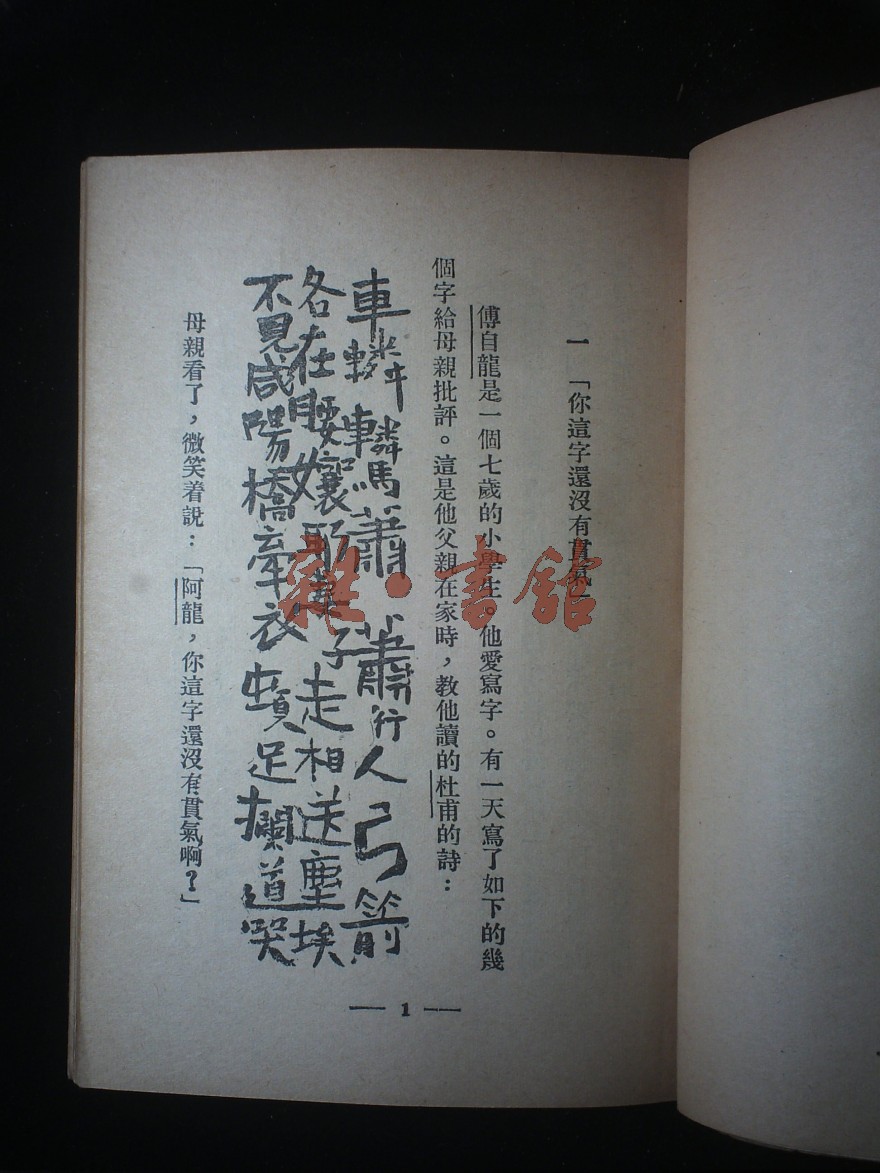 一 「你這字還沒有貫氣」
傅自龍是一個七歲的小學生。他愛寫字。有一天寫了如下的幾
個字給母親批評。這是他父親在家時，教他讀的杜甫的詩：
車轔轔馬蕭蕭行人弓箭
各在腰孃耶妻子走相送塵埃
不見咸陽橋牽衣頓足攔道哭
母親看了，微笑着說：「阿龍，你這字還沒有貫氣啊？」
— 1 —
雜·書館